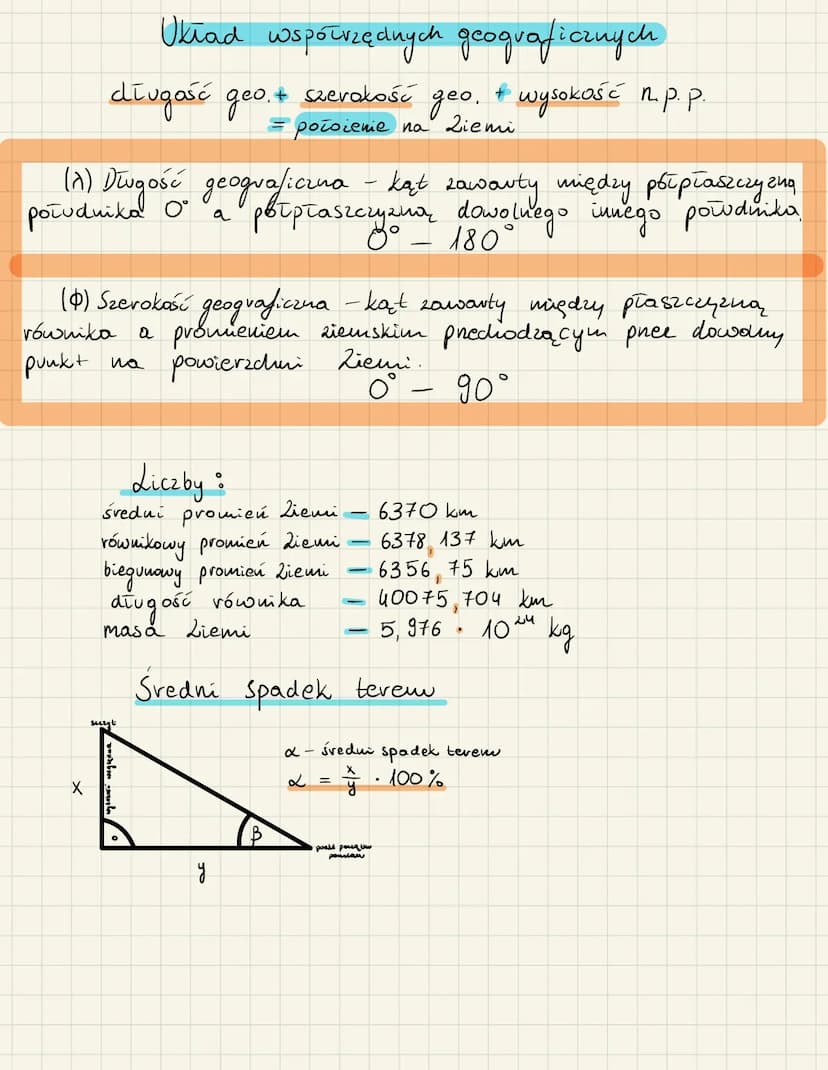 Układ współrzędnych geograficznych
długość geo. + szerokość geo. + wysokość n.p.p.
= położenie na Ziemi
(λ) Długość geograficzna – kąt zawarty między półpłaszczyzną
południka 0° a półpłaszczyzną dowolnego innego południka.
0° – 180°
(Φ) Szerokość geograficzna – kąt zawarty między płaszczyzną
równika a promieniem ziemskim przechodzącym przez dowolny
punkt na powierzchni Ziemi.
0° – 90°
Liczby:
średni promień Ziemi – 6370 km
równikowy promień Ziemi – 6378,137 km
biegunowy promień Ziemi – 6356,75 km
długość równika – 40075,704 km
masa Ziemi – 5,976 · 10²⁴ kg
Średni spadek terenu
szczyt
α – średni spadek terenu
x
α = x/y · 100%
β
y